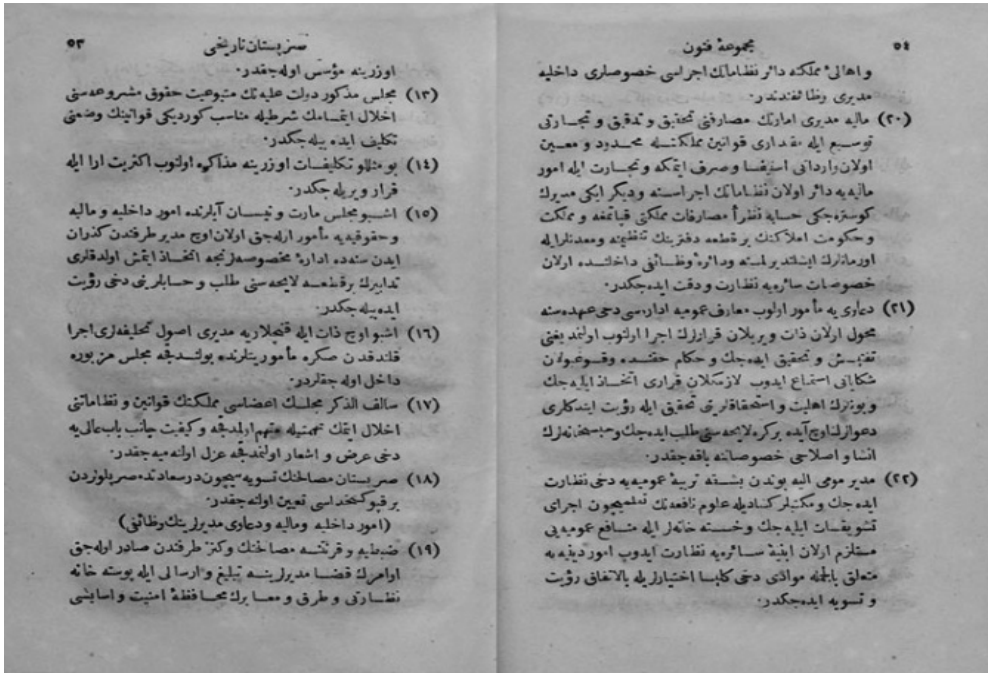 صربستان تاریخی ٥٣
اوزرینه مؤسس اوله جقدر.
(١٣) مجلس مذکور دولت علیه نك متبوعیت حقوق مشروعه سنی
اخلال ایتمامك شرطیله مناسب کوردیکی قوانینك وضعنی
تکلیف ایده بیله جکدر.
(١٤) بو مثللو تکلیفات اوزرینه مذاکره اولنوب اکثریت ارا ایله
قرار ویریله جکدر.
(١٥) اشبو مجلس مارت و نیسان آیلرنده امور داخلیه و مالیه
و حقوقیه یه مأمور اوله جق اولان اوچ مدیر طرفندن کذران
ایدن سنه ده ادارهٔ مخصوصه لرنجه اتخاذ ایتمش اولدقلری
تدابیرك بر قطعه لایحه سنی طلب و حسابلرینی دخی رؤیت
ایده بیله جکدر.
(١٦) اشبو اوچ ذات ایله قنچلاریه مدیری اصول تحلیفلری اجرا
قلندقدن صکره مأموریتلرنده بولندقجه مجلس مزبوره
داخل اوله جقلردر.
(١٧) سالف الذکر مجلسك اعضاسی مملکتك قوانین و نظاماتنی
اخلال ایتمك تهمتیله متهم اولمدقجه و کیفیت جانب باب عالی یه
دخی عرض و اشعار اولنمدقجه عزل اولنه میه جقدر.
(١٨) صربستان مصالحنك تسویه سیچون درسعادتده صرپلولردن
بر قپو کتخداسی تعیین اولنه جقدر.
(امور داخلیه و مالیه و دعاوی مدیرلرینك وظائفی)
(١٩) ضبطیه و قرنتنه مصالحنك و کنز طرفندن صادر اوله جق
اوامرك قضا مدیرلرینه تبلیغ و ارسالی ایله پوسته خانه
نظارتی و طرق و معابرك محافظهٔ امنیت و اسایشی
مجموعهٔ فنون ٥٤
و اهالیٔ مملکته دائر نظاماتك اجراسی خصوصلری داخلیه
مدیری وظائفندندر.
(٢٠) مالیه مدیری امارتك مصارفنی تحقیق و تدقیق و تجارتی
توسیع ایله مقداری قوانین مملکتله محدود و معین
اولان وارداتی استیفا و صرف ایتمکه و تجارت ایله امور
مالیه یه دائر اولان نظاماتك اجراسنه و دیکر ایکی مدیرك
کوستره جکی حسابه نظراً مصارفات مملکتی قپاتمغه و مملکت
و حکومت املاکنك بر قطعه دفترینك تنظیمنه و معدنلر ایله
اورمانلرك ایشلدیرلمسنه و دائرهٔ وظائفی داخلنده اولان
خصوصات سائره یه نظارت و دقت ایده جکدر.
(٢١) دعاوی یه مأمور اولوب معارف عمومیه اداره سی دخی عهده سنه
محول اولان ذات ویریلان قرارلرك اجرا اولنوب اولنمدیغنی
تفتیش و تحقیق ایده جك و حکام حقنده وقوعبولان
شکایاتی استماع ایدوب لازمکلان قراری اتخاذ ایلیه جك
و بونلرك اهلیت و استحقاقلرینی تحقیق ایله رؤیت ایتدکلری
دعوالرك اوچ آیده بر کره لایحه سنی طلب ایده جك و حبسخانه لرك
انشا و اصلاحی خصوصاتنه باقه جقدر.
(٢٢) مدیر مومی الیه بوندن بشقه تربیهٔ عمومیه یه دخی نظارت
ایده جك و مکتبلر کشادیله علوم نافعه نك تعلیمیچون اجرای
تشویقات ایلیه جك و خسته خانه لر ایله منافع عمومیه یی
مستلزم اولان ابنیهٔ سائره یه نظارت ایدوب امور دینیه یه
متعلق بالجمله موادی دخی کلیسا اختیارلریله بالاتفاق رؤیت
و تسویه ایده جکدر.